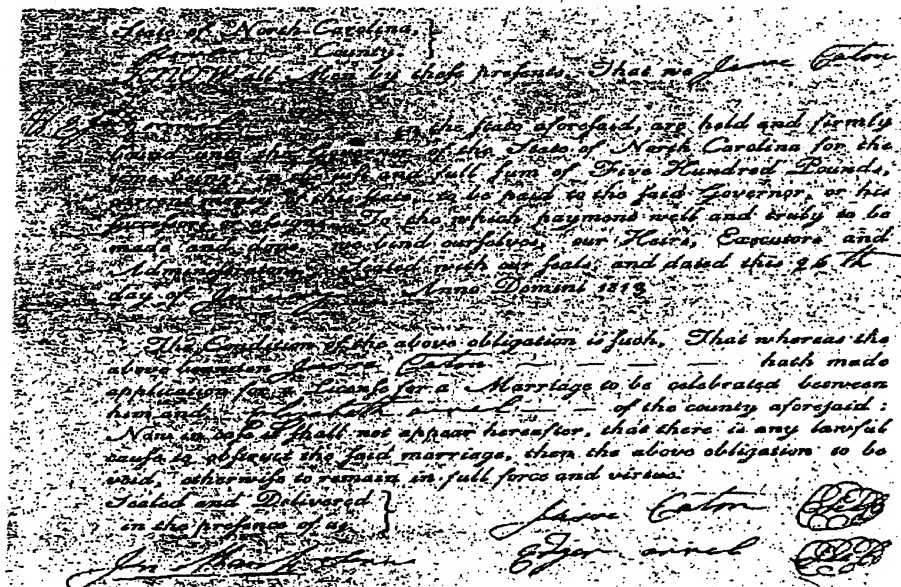 State of North-Carolina,
County
KNOW all Men by thefe prefents, That we Jesse Eaton
in the ftate aforefaid, are held and firmly
bound unto the Governor of the State of North Carolina for the
time being, in the juft and full fum of Five Hundred Pounds,
current money of this ftate, to be paid to the faid Governor, or his
fucceffors or affigns. To the which payment well and truly to be
made and done, we bind ourfelves, our Heirs, Executors and
Adminiftrators. Sealed with our feals, and dated this 26th
day of Anno Domini 1813
The Condition of the above obligation is fuch, That whereas the
above bounden Jesse Eaton hath made
application for a License for a Marriage to be celebrated between
him and Elizabeth of the county aforefaid :
Now in cafe it fhall not appear hereafter, that there is any lawful
caufe to obftruct the faid marriage, then the above obligation to be
void, otherwife to remain in full force and virtue.
Sealed and Delivered
in the prefence of us
Jesse Eaton Seal
Edger Seal